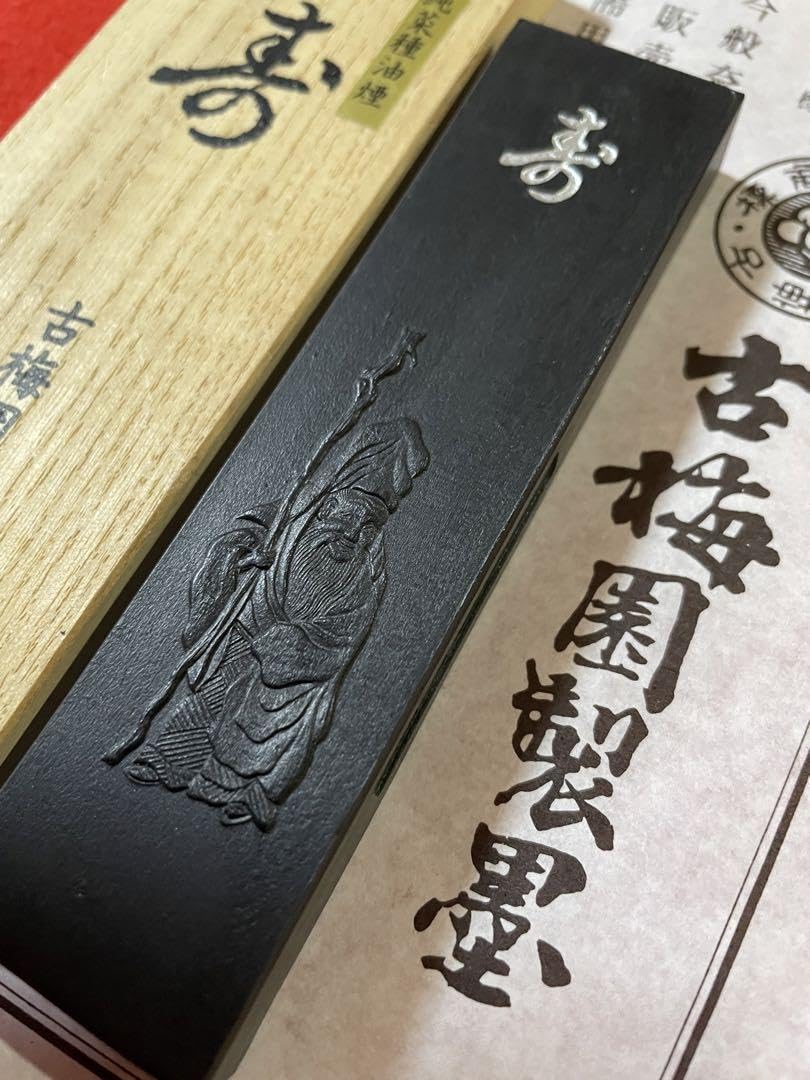 純菜種油煙
寿
古梅園
寿
今般
販売
古梅園製墨